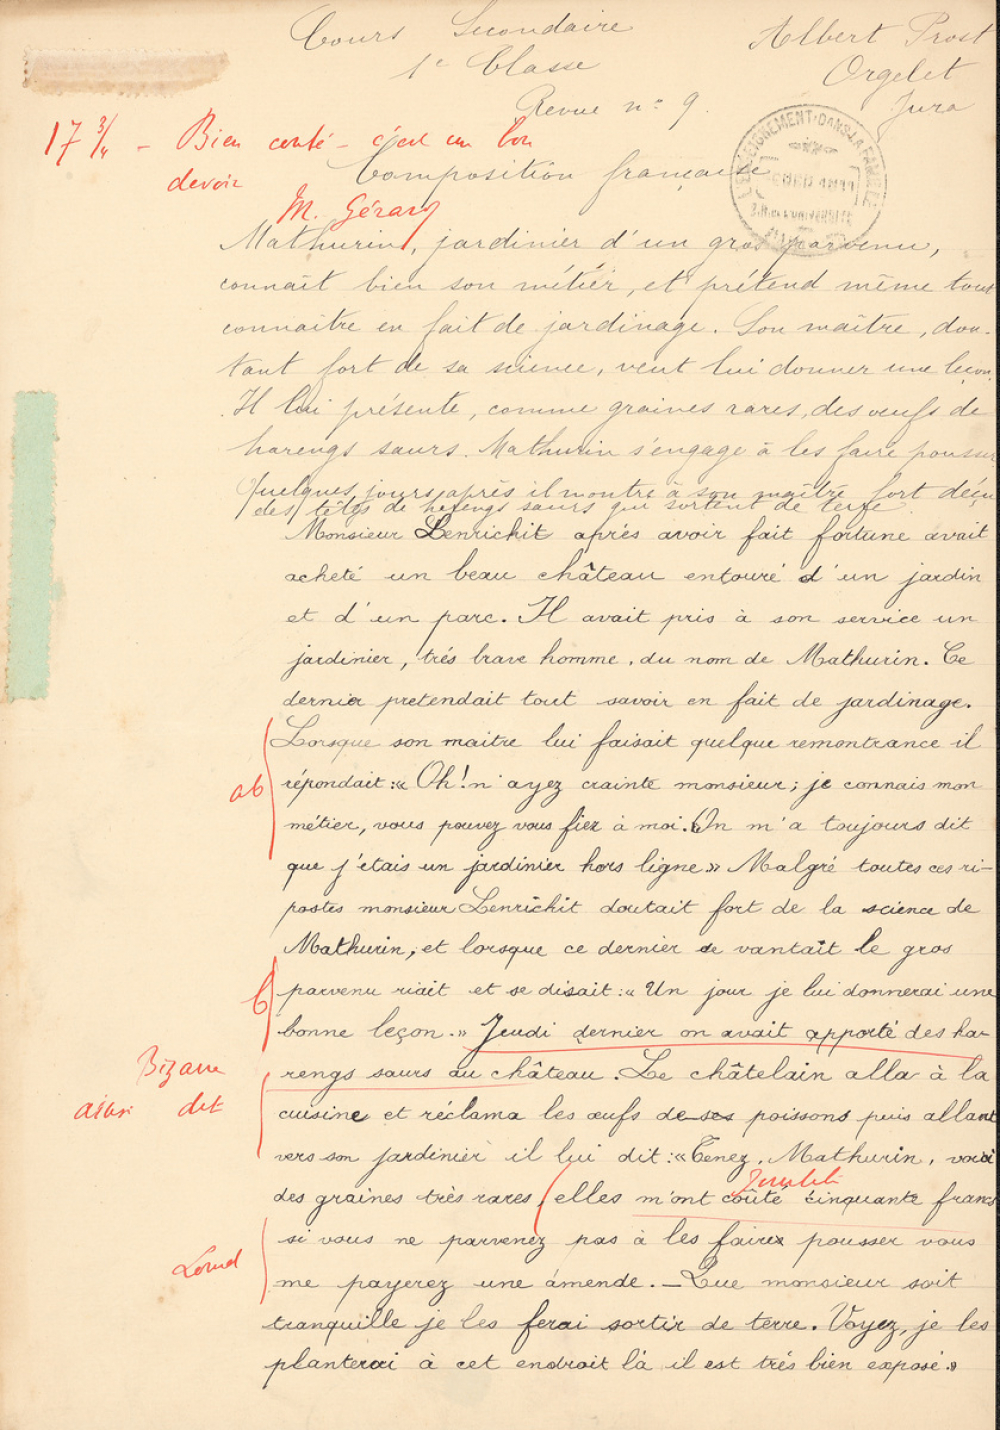 Cours Secondaire
1e Classe
Albert Prost
Orgelet
Jura
Revue n° 9.
17 3/4 - Bien conté - c'est un bon
devoir
M. Gérard
L'ENSEIGNEMENT DANS LA FAMILLE
Composition française
Mathurin, jardinier d'un gros parvenu,
connaît bien son métier, et prétend même tout
connaitre en fait de jardinage. Son maître, dou-
tant fort de sa science, veut lui donner une leçon.
Il lui présente, comme graines rares, des œufs de
harengs saurs. Mathurin s'engage à les faire pousser
Quelques jours après il montre à son maître fort déçu
des têtes de harengs saurs qui sortent de terre.
Monsieur Lenrichit aprés avoir fait fortune avait
acheté un beau château entouré d'un jardin
et d'un parc. Il avait pris à son service un
jardinier, trés brave homme, du nom de Mathurin. Ce
dernier pretendait tout savoir en fait de jardinage.
Lorsque son maitre lui faisait quelque remontrance il
ab
répondait: « Oh! n'ayez crainte monsieur; je connais mon
métier, vous pouvez vous fier à moi. On m'a toujours dit
que j'étais un jardinier hors ligne » Malgré toutes ces ri-
postes monsieur Lenrichit doutait fort de la science de
Mathurin, et lorsque ce dernier se vantait le gros
b
parvenu riait et se disait: « Un jour je lui donnerai une
bonne leçon. » Jeudi dernier on avait apporté des ha-
rengs saurs au château. Le châtelain alla à la
Bizarre
ainsi dit
cuisine et réclama les œufs de ses poissons puis allant
vers son jardinier il lui dit: « Tenez, Mathurin, voici
des graines très rares, elles m'ont coûté cinquante francs
Inutile
si vous ne parvenez pas à les faire pousser vous
Lourd
me payerez une amende. — Que monsieur soit
tranquille je les ferai sortir de terre. Voyez, je les
planterai à cet endroit là il est trés bien exposé. »